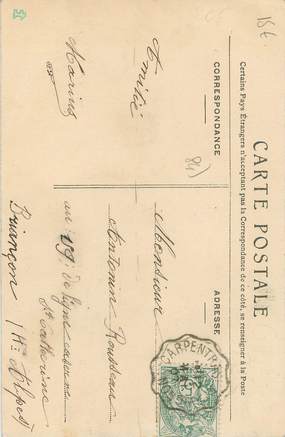 CARTE POSTALE
Certains Pays Étrangers n'acceptant pas la Correspondance de ce côté, se renseigner à la Poste
CORRESPONDANCE
ADRESSE
15 €
84)
Emilie
Marius
Monsieur
Antonin Rousseau
au 159e de ligne caserne
St Catherine
Briançon (Htes Alpes)
CARPENTR